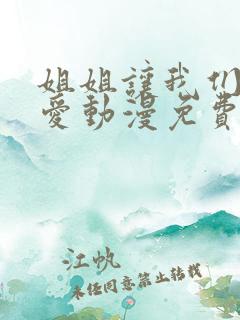 姐姐讓我們
愛動漫免費
江帆
未经同意禁止转载